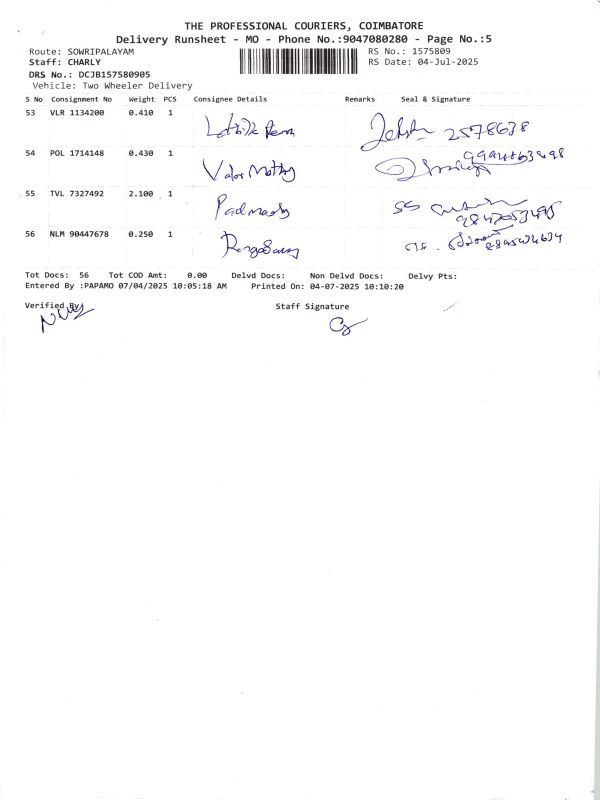 THE PROFESSIONAL COURIERS, COIMBATORE
Delivery Runsheet - MO - Phone No.:9047080280 - Page No.:5
Route: SOWRIPALAYAM RS No.: 1575809
Staff: CHARLY RS Date: 04-Jul-2025
DRS No.: DCJB157580905
Vehicle: Two Wheeler Delivery
S No Consignment No Weight PCS Consignee Details Remarks Seal & Signature
53 VLR 1134200 0.410 1 2578638
54 POL 1714148 0.430 1
55 TVL 7327492 2.100 1
56 NLM 90447678 0.250 1
Tot Docs: 56 Tot COD Amt: 0.00 Delvd Docs: Non Delvd Docs: Delvy Pts:
Entered By :PAPAMO 07/04/2025 10:05:18 AM Printed On: 04-07-2025 10:10:20
Verified By Staff Signature